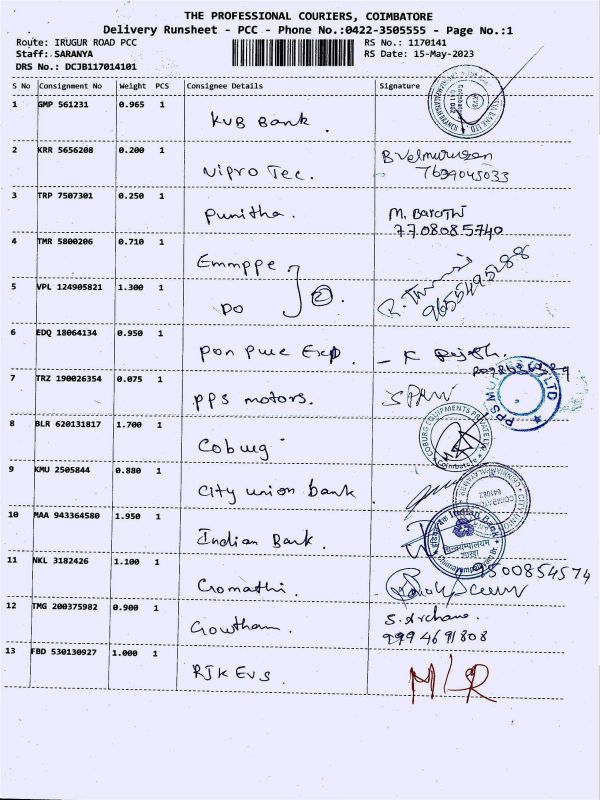 THE PROFESSIONAL COURIERS, COIMBATORE
Delivery Runsheet - PCC - Phone No.:0422-3505555 - Page No.:1
Route: IRUGUR ROAD PCC RS No.: 1170141
Staff: SARANYA RS Date: 15-May-2023
DRS No.: DCJB117014101
S No Consignment No Weight PCS Consignee Details Signature
1 GMP 561231 0.965 1
KVB Bank.
2 KRR 5656208 0.200 1 B Velmurugan
Nipro Tec. 7639045033
3 TRP 7507301 0.250 1
Punitha. M. Barathi
7708085740
4 TMR 5800206 0.710 1
Emmppe
5 VPL 124905821 1.300 1
DO } 2. 9655495288
6 EDQ 18064134 0.950 1
Pon Pure Exp. - K Rajesh.
7 TRZ 190026354 0.075 1
PPS motors. PPS MOTORS LTD
8 BLR 620131817 1.700 1 COBURG EQUIPMENTS PRIVATE LTD
Coburg Coimbatore
9 KMU 2505844 0.880 1
City union bank CITY UNION
10 MAA 943364580 1.950 1
Indian Bank. Indian Bank
11 NKL 3182426 1.100 1 7500854574
Gomathi.
12 TMG 200375982 0.900 1 S. Archana
Gowtham. 9994691808
13 FBD 530130927 1.000 1
RJK EVS. MLR